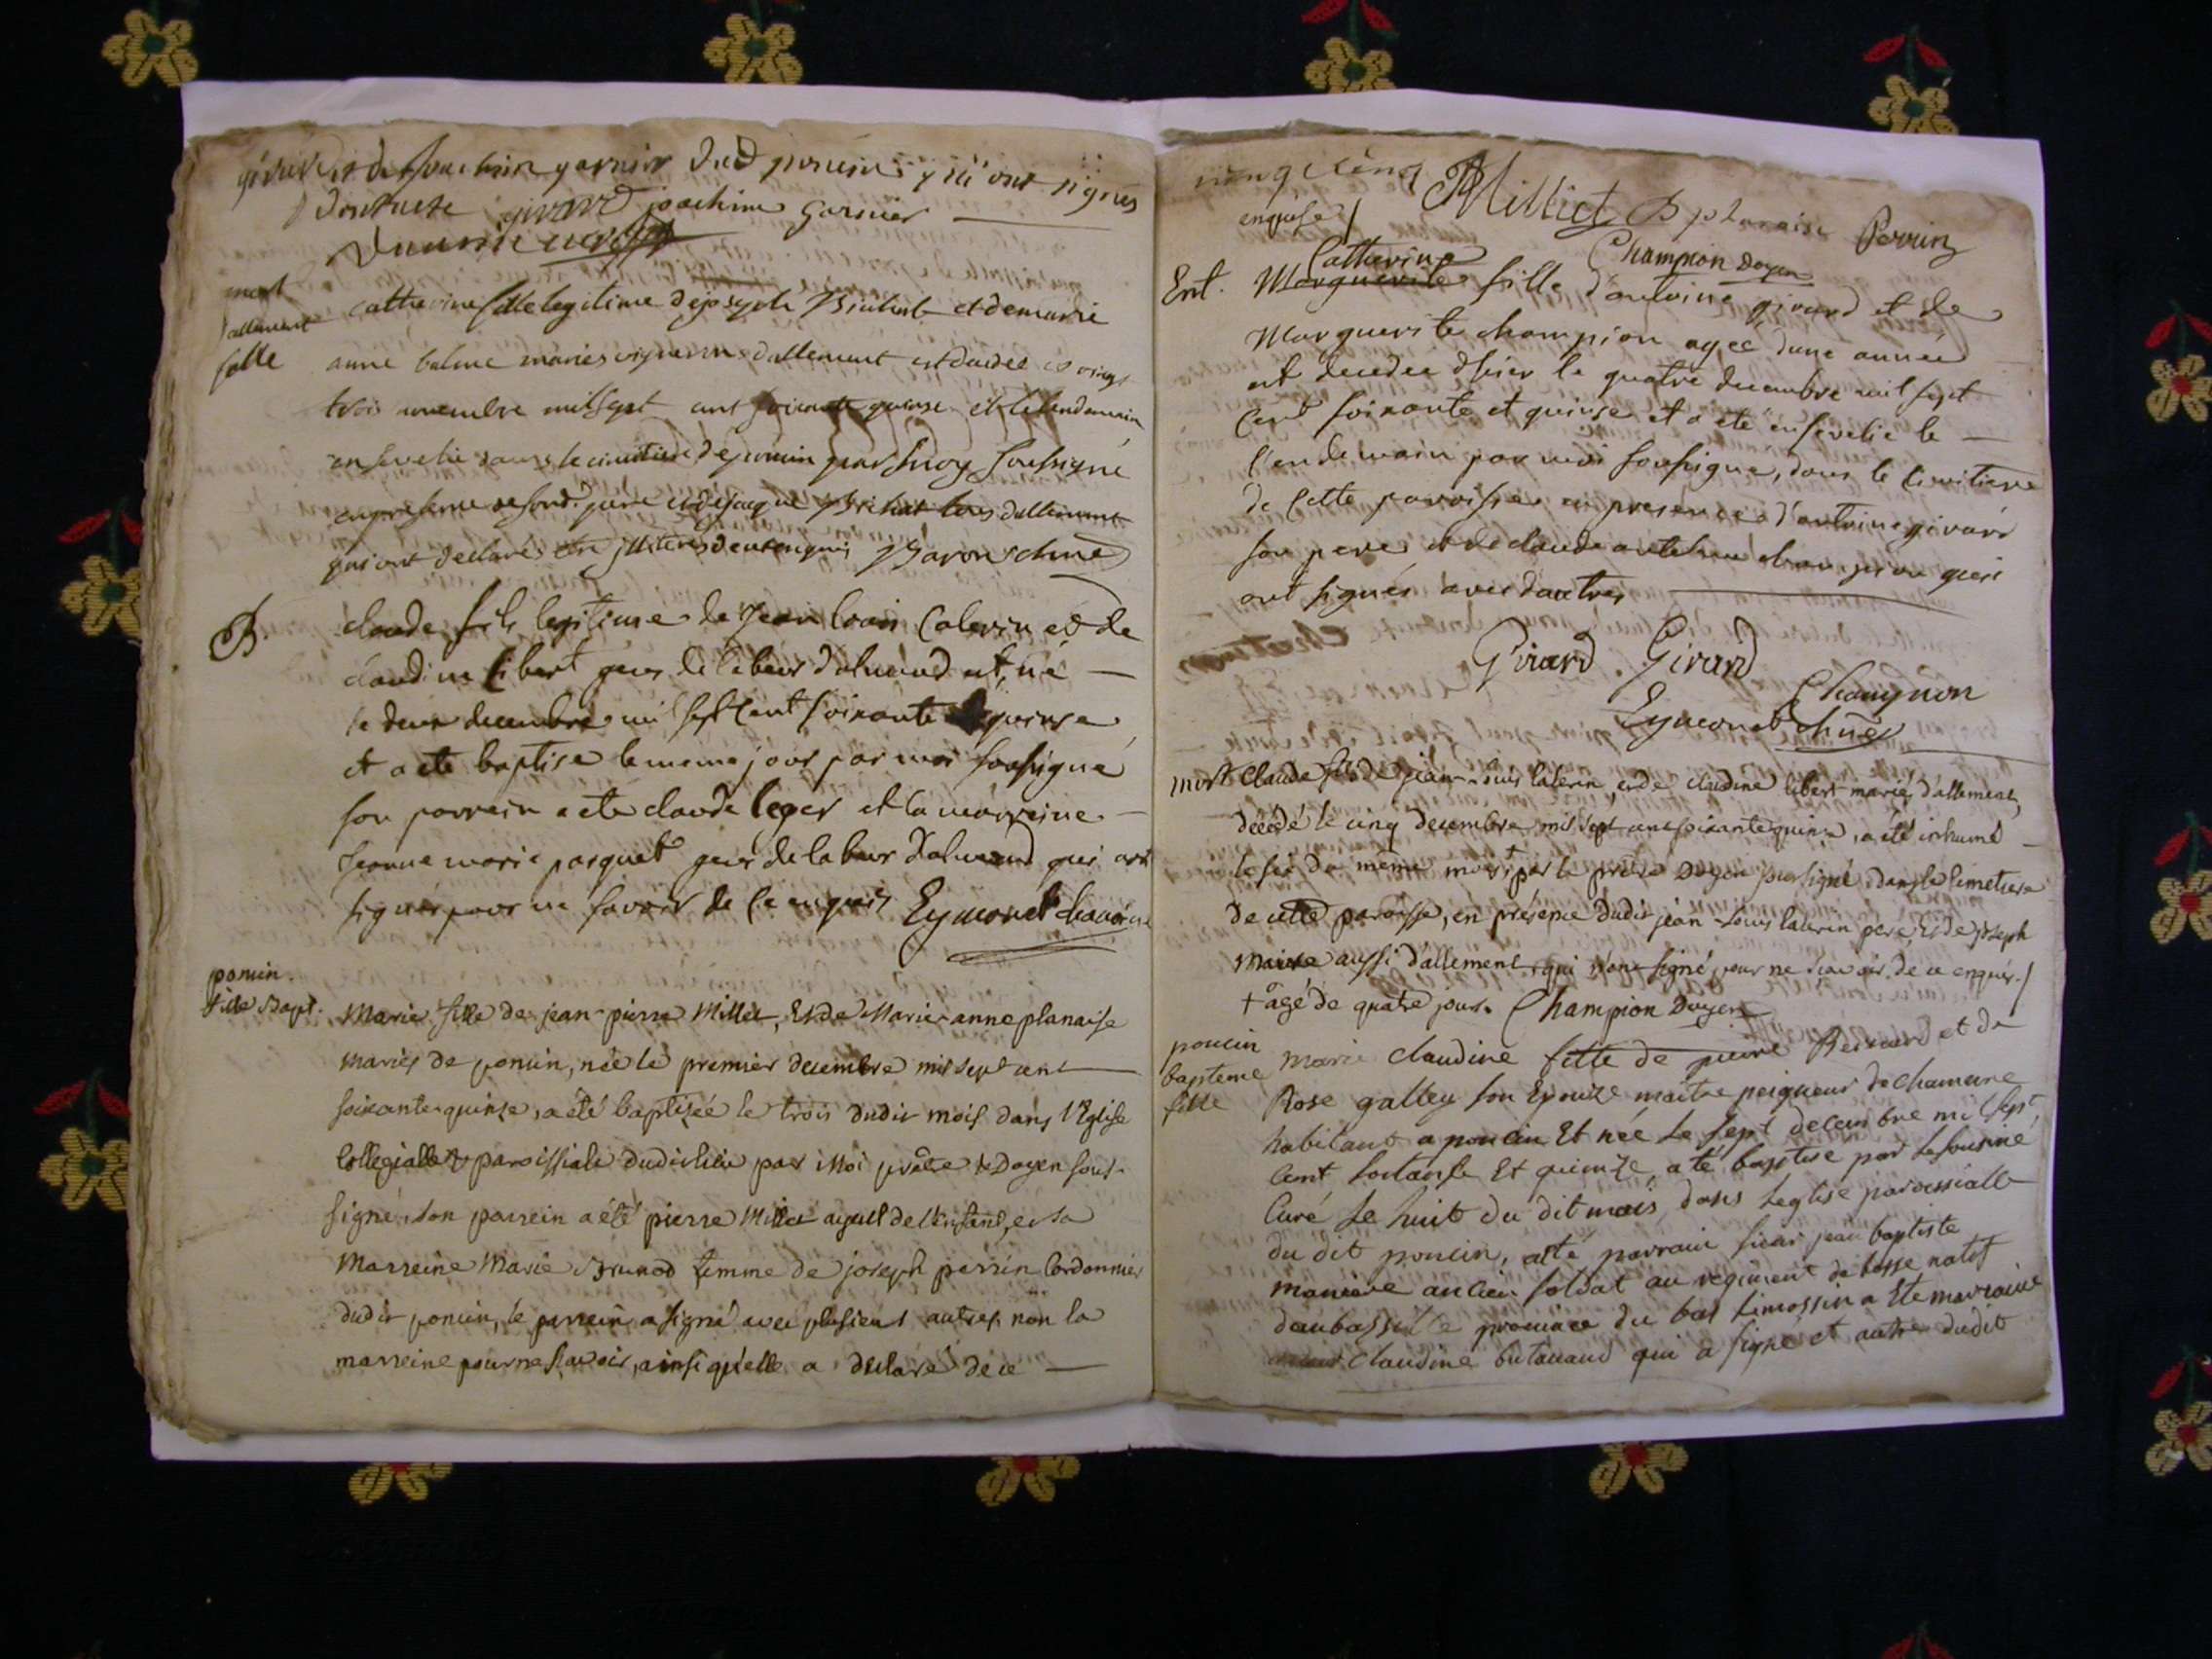 girard et de joachim garnier dud poncin qui ont signés
girard joachim Garnier
mort
dallement
fille
catherine fille legitime de joseph Bichat et de marie
anne balme mariés vigneron dallement est decedée le vingt
trois novembre mil sept cent soixante quinse et le lendemain
ensevelie dans le cimitiere de poncin par moy soussigné
en presence de sond. pere et de jacque Bichat tous dallement
qui ont declarés etre illiteres de ce enquis Baron chne
B.
claude fils legitime de Jean louis Calerin et de
claudine libert gens de labeur dalmend est né
le deux decembre mil sept cent soixante quinse
et a ete baptise le meme jour par moi soussigné
son parrein a ete claude leger et la marreine
Jeanne marie pasquet gens de labeur dalmend qui ont
signer pour ne savoir de ce enquis Eymonet chanoine
poncin.
fille Bapt.
Marie fille de jean-pierre Millet, Et de Marie-anne planaise
mariés de poncin, née le premier decembre mil sept cent
soixante-quinze, a été baptizée le trois dudit mois dans l'Eglise
Collegialle & paroissiale dudit lieu par Moi prêtre & Doyen sous-
signé, son parrein a été pierre Millet ayeul de l'Enfant, et sa
Marreine Marie Brunod femme de joseph perrin Cordonnier
dudit poncin, le parrein a signé avec plusieurs autres, non la
marreine pour ne sçavoir, ainsi qu'elle a declaré de ce
enquise /
Milliet B planaise Perrin
Champion Doyen
Ent.
Catherine
Marguerite fille d'antoine girard et de
Marguerite champion agée d'une année
est decedée d'hier le quatre decembre mil sept
Cent soixante et quinse et a eté ensevelie le
l'endemain par moi soussigné, dans le cimitiere
de Cette paroisse en presence d'antoine girard
son pere et de claude antelme champion qui
ont signés avec dautres
Girard Girard
Champion
Eymonet chne
mort
Claude fils de jean-louis Calerin, et de claudine libert mariés d'allement,
décédé le cinq decembre mil sept cent soixante quinze, a été inhumé
le six du même mois, + par le prêtre Doyen soussigné, dans le cimetiere
de cette paroisse, en présence dudit jean-louis Calerin pere, Et de joseph
Maire aussi d'allement, qui n'ont signé pour ne sçavoir de ce enquis. /
+ âgé de quatre jours. Champion Doyen
poncin
bapteme
fille
marie claudine fille de pierre Bernard et de
Rose galley son Epouze maitre peigneur de chamvre
habitant a poncin Et née le sept decembre mil sept
cent soitante Et quinze, a été baptise par le sousiné
Curé le huit du dit mois dans leglise paroissialle
du dit poncin, a été parrain sieur jean baptiste
maniere ancien soldat au regiment de bosse natif
daubassille province du bas limossin a Ete marraine
claudine butavand qui a signe et autre dudit